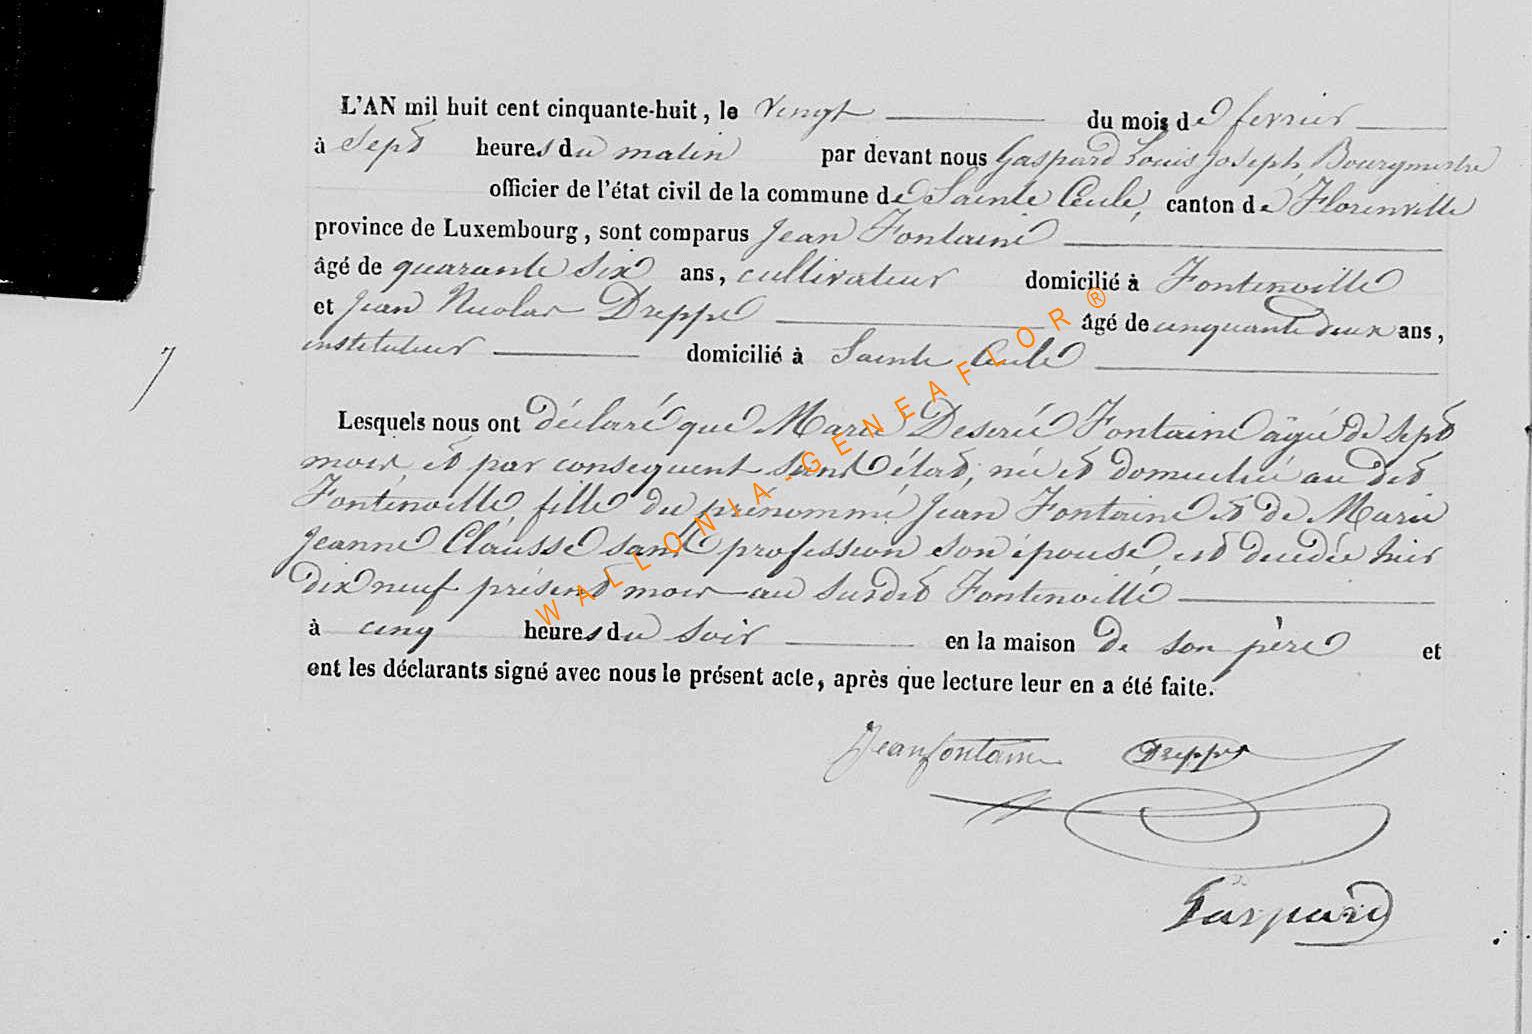 L'AN mil huit cent cinquante-huit, le vingt du mois de fevrier
à Sept heures du matin par devant nous Gaspard Louis Joseph, Bourgmestre
officier de l'état civil de la commune de Sainte Cecile, canton de Florenville
province de Luxembourg, sont comparus Jean Fontaine
âgé de quarante six ans, cultivateur domicilié à Fontenoille
et Jean Nicolas Dreppe âgé de cinquante deux ans,
instituteur domicilié à Sainte Cecile
7
Lesquels nous ont déclaré que Marie Deserée Fontaine âgée de sept
mois et par consequent sans état, née et domiciliée au dit
Fontenoille fille du prénommé Jean Fontaine et de Marie
Jeanne Clausse sans profession son épouse, est decedée hier
dix neuf présent mois au susdit Fontenoille
à cinq heures du soir en la maison de son père et
ont les déclarants signé avec nous le présent acte, après que lecture leur en a été faite.
Jean fontaine Dreppe
Gaspard
WALLONIA-GENEAFLOR®